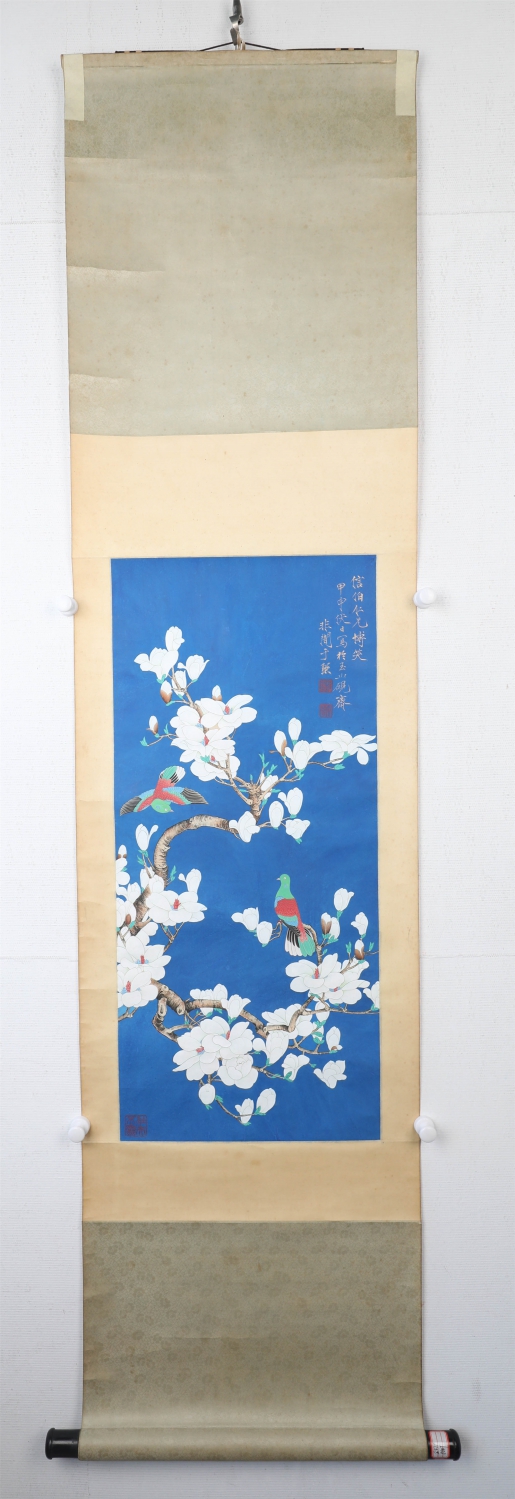 信伯仁兄博笑
甲申秋日写於玉山砚斋
非闇于照